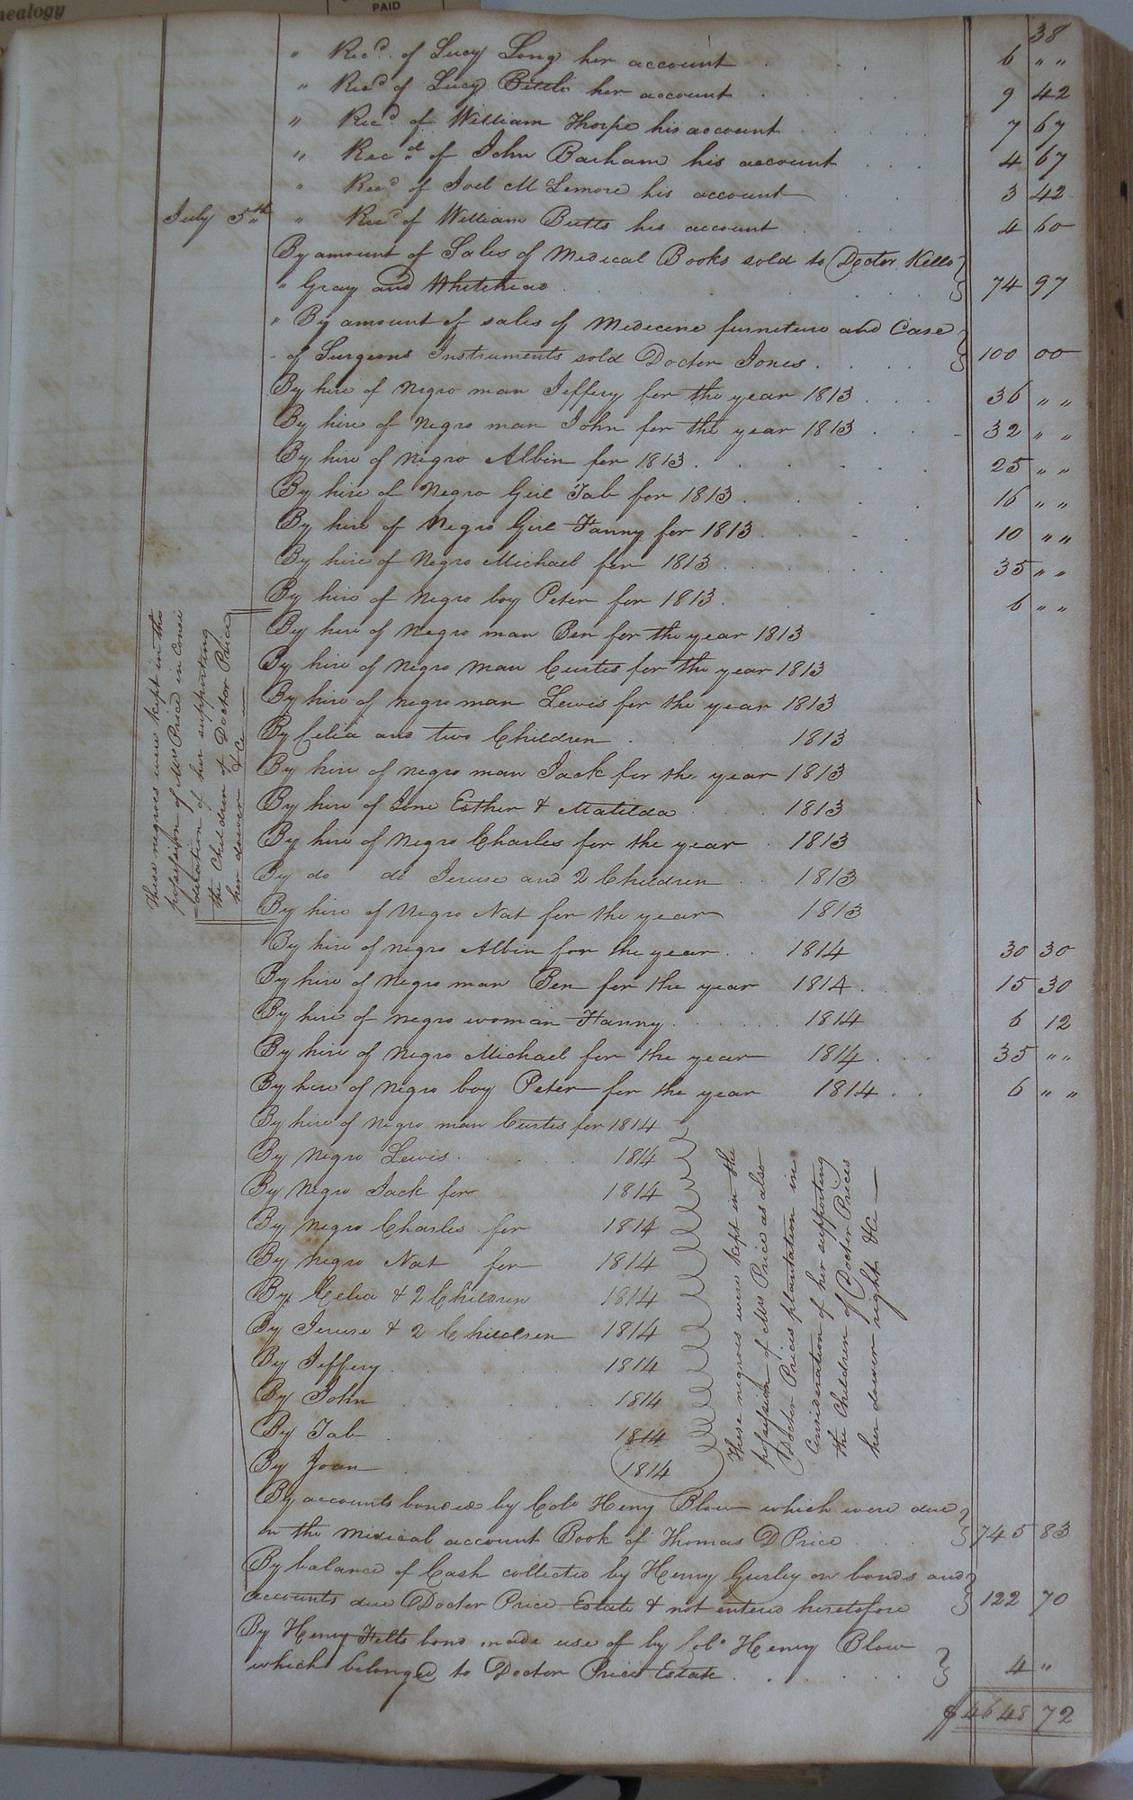 nealogy
PAID
38
" Recd. of Lucy Long her account 6 " "
" Recd of Lucy Bittle her account 9 42
" Recd. of William Thorpe his account 7 67
" Recd of John Barham his account 4 67
" Recd of Joel M Lemore his account 3 42
July 5th " Recd of William Butts his account 4 60
By amount of Sales of Medical Books sold to Doctor Kello
" Gray and Whitehead 74 97
" By amount of sales of Medicine furniture and Case
of Surgeons Instruments sold Doctor Jones 100 00
By hire of Negro man Jeffery for the year 1813 36 " "
By hire of Negro man John for the year 1813 32 " "
By hire of Negro Albin for 1813 25 " "
By hire of Negro Girl Tab for 1813 16 " "
By hire of Negro Girl Fanny for 1813 10 " "
By hire of Negro Michael for 1813 35 " "
By hire of Negro boy Peter for 1813 6 " "
By hire of Negro man Ben for the year 1813
By hire of Negro Man Curtis for the year 1813
By hire of negro man Lewis for the year 1813
By Celia and two Children 1813
By hire of negro man Jack for the year 1813
By hire of Jone Esther & Matilda 1813
By hire of Negro Charles for the year 1813
By do do Jeruse and 2 Children 1813
By hire of Negro Nat for the year 1813
These negroes were kept in the
possession of Mrs Price in consi
deration of her supporting
the Children of Doctor Price
her dower &c
By hire of negro Albin for the year 1814 30 30
By hire of Negro man Ben for the year 1814 15 30
By hire of negro woman Fanny 1814 6 12
By hire of Negro Michael for the year 1814 35 " "
By hire of Negro boy Peter for the year 1814 6 " "
By hire of Negro man Curtis for 1814
By Negro Lewis 1814
By Negro Jack for 1814
By negro Charles for 1814
By negro Nat for 1814
By Celia & 2 Children 1814
By Jeruse & 2 Children 1814
By Jeffery 1814
By John 1814
By Tab 1814
By Joan 1814
These negroes were kept in the
possession of Mrs Price as also
Doctor Prices plantation in
Consideration of her supporting
the Children of Doctor Prices
her dower right &c
By accounts bonded by Colo Henry Blow which were due
on the Medical account Book of Thomas D Price 745 83
By balance of Cash collected by Henry Gurley on bonds and
accounts due Doctor Price Estate & not entered heretofore 122 70
By Henry Felts bond made use of by Colo Henry Blow
which belonged to Doctor Price Estate 4 "
$ 4648 72